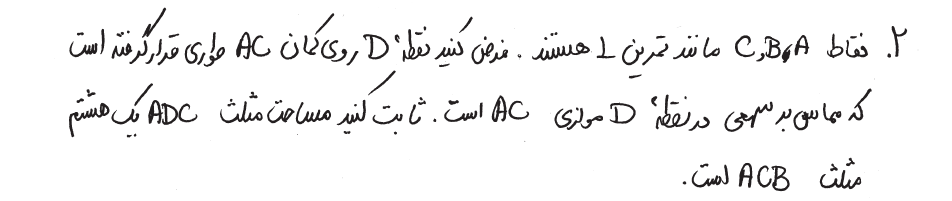 ۲. نقاط A و B و C مانند تمرین 1 هستند. فرض کنید نقطهٔ D روی کمان AC طوری قرار گرفته است
که مماس بر سهمی در نقطهٔ D موازی AC است. ثابت کنید مساحت مثلث ADC یک هشتم
مثلث ACB است.